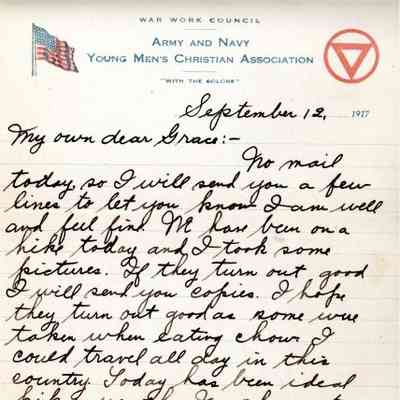 WAR WORK COUNCIL
ARMY AND NAVY
YOUNG MEN'S CHRISTIAN ASSOCIATION
"WITH THE COLORS"
September 12, 1917
My own dear Grace:-
No mail
today so I will send you a few
lines to let you know I am well
and feel fine. We have been on a
hike today and I took some
pictures. If they turn out good
I will send you copies. I hope
they turn out good as some were
taken when eating chow. I
could travel all day in this
country. Today has been ideal